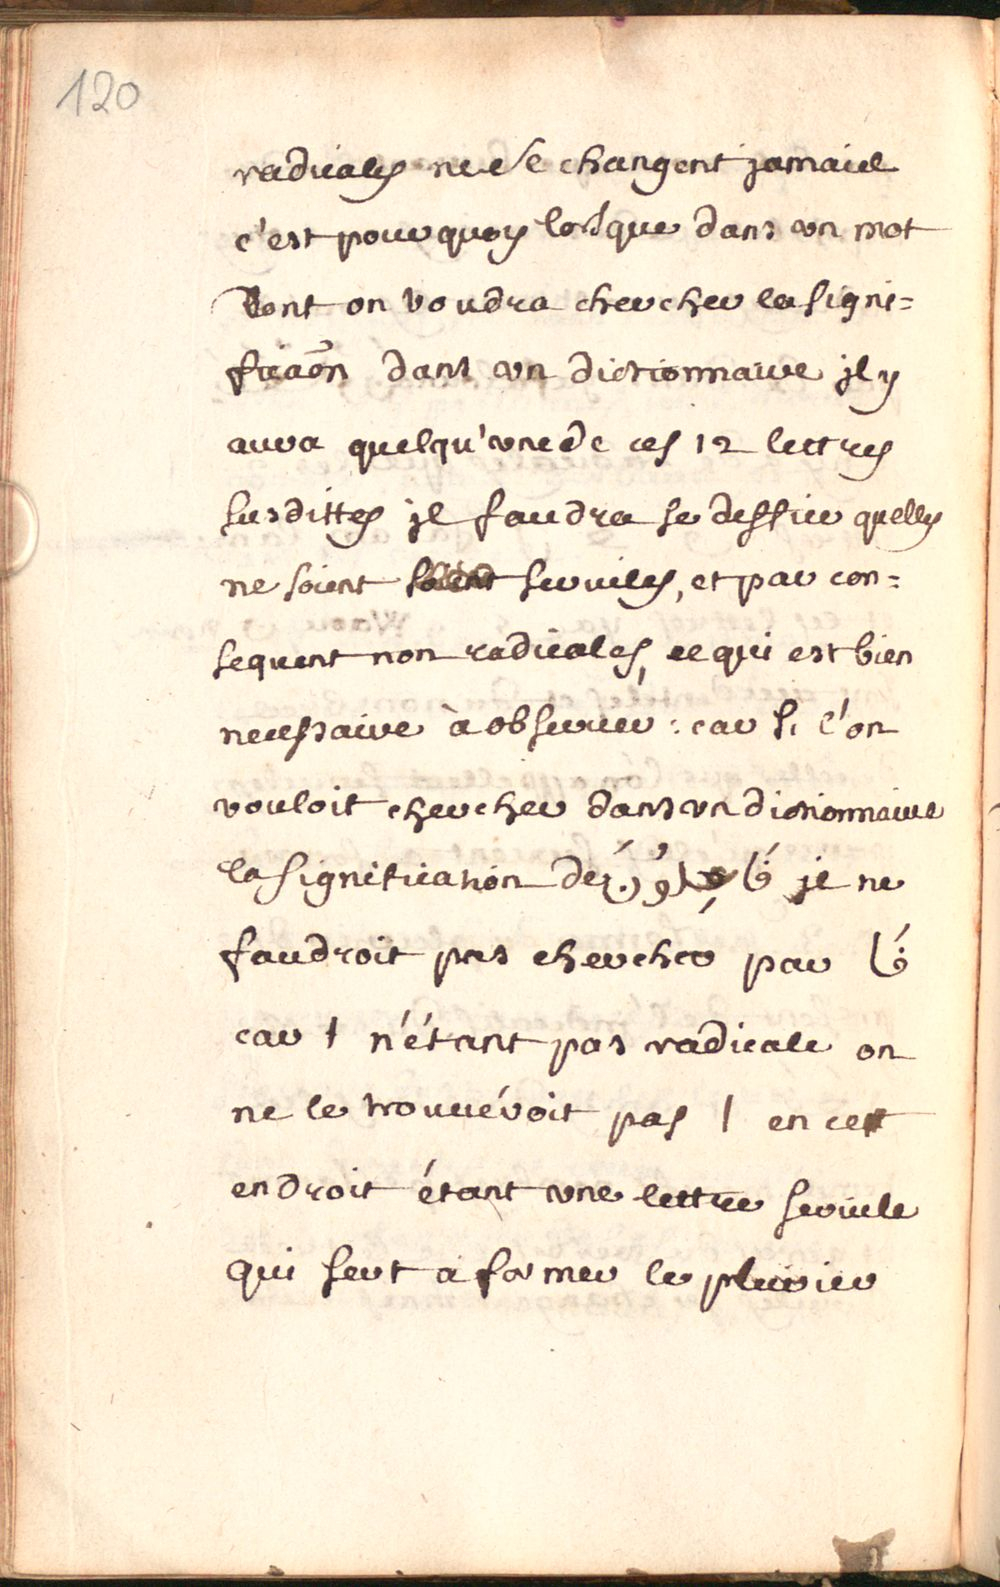 120
radicales ne se changent jamais
c'est pourquoy lorsque dans vn mot
Dont on voudra chercher la signi=
ficãon dans vn dictionnaire jl y
aura quelqu'vne de ces 12 lettres
susdittes jl faudra se deffier quelles
ne soient seruiles, et par con=
sequent non radicales, ce qui est bien
necessaire à obseruer : car si l'on
vouloit chercher dans vn dictionnaire
la signification de jl ne
faudroit pas chercher par
car ا n'étant pas radicale on
ne le trouuéroit pas ا en cet
endroit étant vne lettre seruile
qui sert a former le plurier